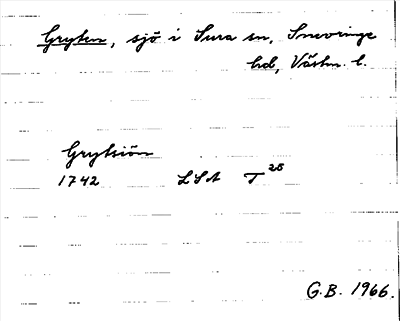 Gryten, sjö i Sura sn, Snevringe
hd, Västm. l.
Grytsiön
1742 LSA T 28
G.B. 1966.